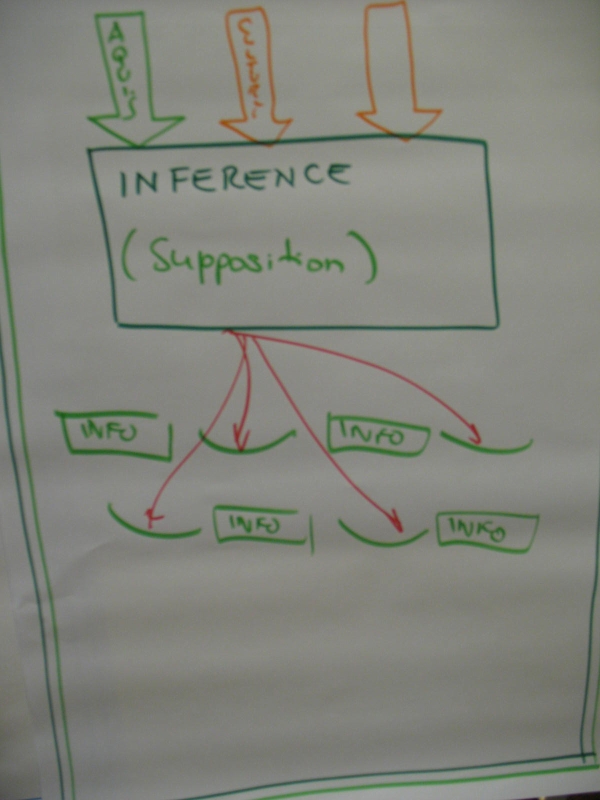 INFERENCE
(Supposition)
INFO
INFO
INFO
INFO